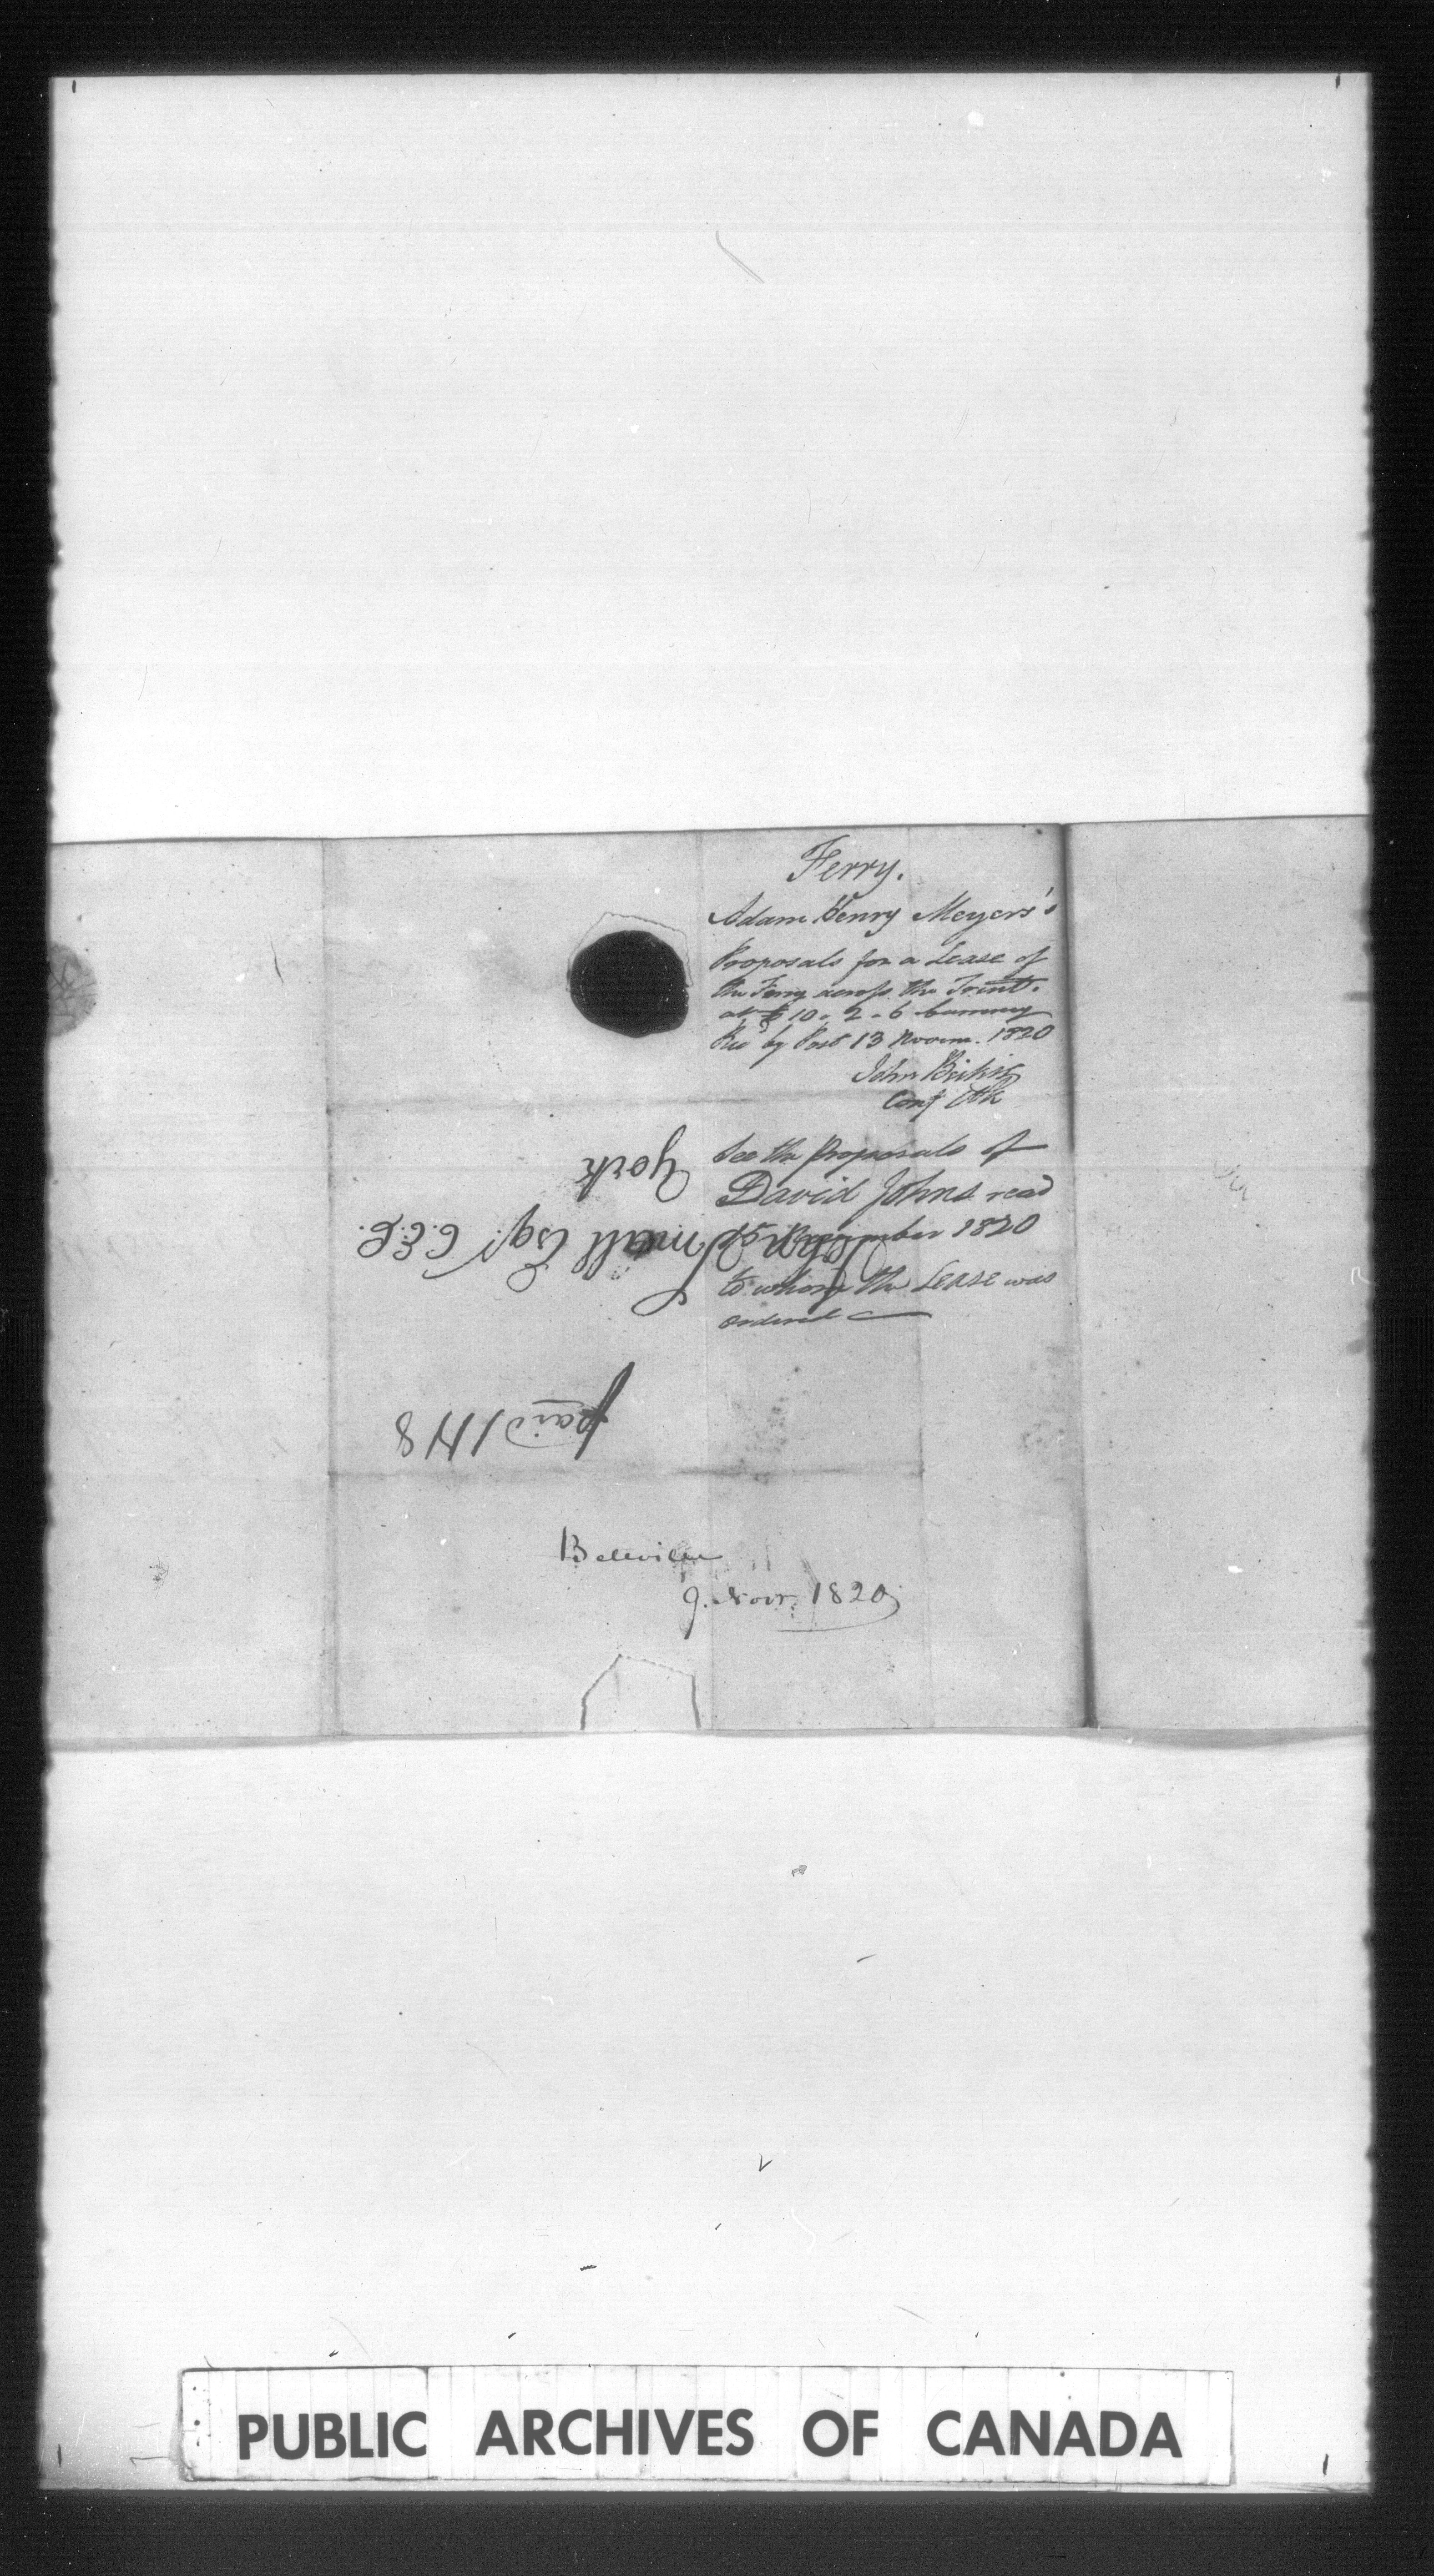 Ferry.
Adam Henry Meyers's
Proposals for a Lease of
the Ferry across the Trent.
at £ 10 - 2 - 6
Rec'd by Post 13 Novem. 1820
John Beikie
Conf Clk
See the Proposals of
David Johns read
15 November 1820
to whom the Lease was
ordered
John Small Esqr. C.E.C.
York
paid 1/N 8
Belleville
9. Novr. 1820
PUBLIC ARCHIVES OF CANADA